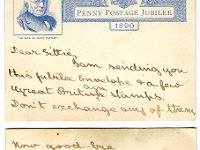 PENNY POSTAGE JUBILEE
1890
Dear Sittie,
I am sending you
this jubilee Envelope & a few
Great British stamps.
Don't exchange any of them
Now good-bye